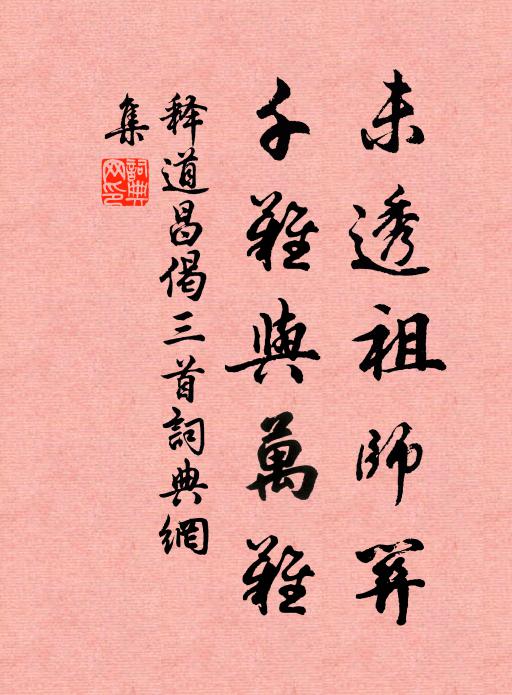 未透祖師關
千難與萬難
释道昌偈三首詞典網
集
詞典
网印